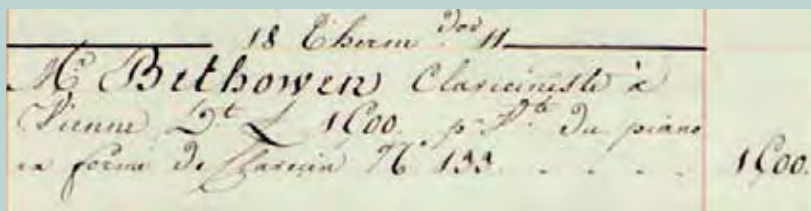 18 Therm.dor 11
Mr. Bethowen Claveciniste à
Vienne Dt L 1500. p. Vte du piano
en forme de Clavecin No. 133 . . . . . 1500.